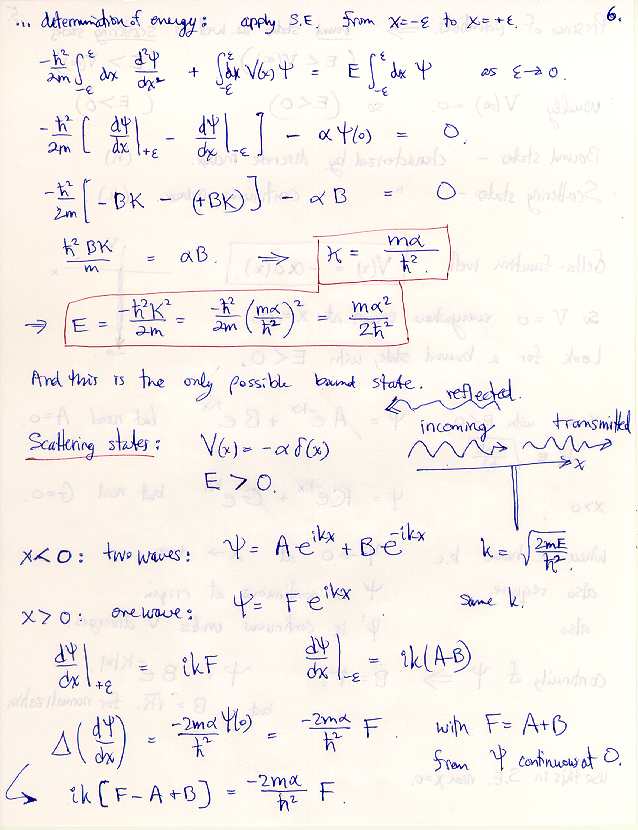 ... determination of energy: apply S.E. from x=-ε to x=+ε. 6.
-ħ²/2m ∫_{-ε}^{ε} dx d²Ψ/dx² + ∫_{-ε}^{ε} dx V(x) Ψ = E ∫_{-ε}^{ε} dx Ψ as ε→0.
-ħ²/2m [ dΨ/dx|_{+ε} - dΨ/dx|_{-ε} ] - αΨ(0) = 0.
-ħ²/2m [ -BK - (+BK) ] - αB = 0
ħ²BK/m = αB. ⇒ K = mα/ħ².
⇒ E = -ħ²K²/2m = -ħ²/2m (mα/ħ²)² = mα²/2ħ²
And this is the only possible bound state.
reflected.
Scattering states: V(x) = -αδ(x)
incoming transmitted
E > 0. x
x<0: two waves: Ψ = A e^{ikx} + B e^{-ikx} k = √(2mE/ħ²).
x>0: one wave: Ψ = F e^{ikx} same k.
dΨ/dx|_{+ε} = ikF dΨ/dx|_{-ε} = ik(A-B)
Δ(dΨ/dx) = -2mα/ħ² Ψ(0) = -2mα/ħ² F. with F = A+B
from Ψ continuous at 0.
ik[F-A+B] = -2mα/ħ² F.